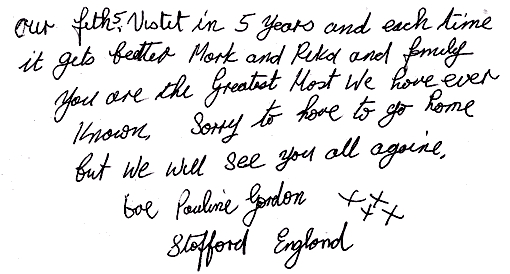 our fith 5. Vistit in 5 Years and each time
it gets better Mark and Rika and family
you are the Greatest Most We have ever
Known, Sorry to have to go home
but We Will See you all againe,
Love Pauline Gordon xxxx
Stafford England